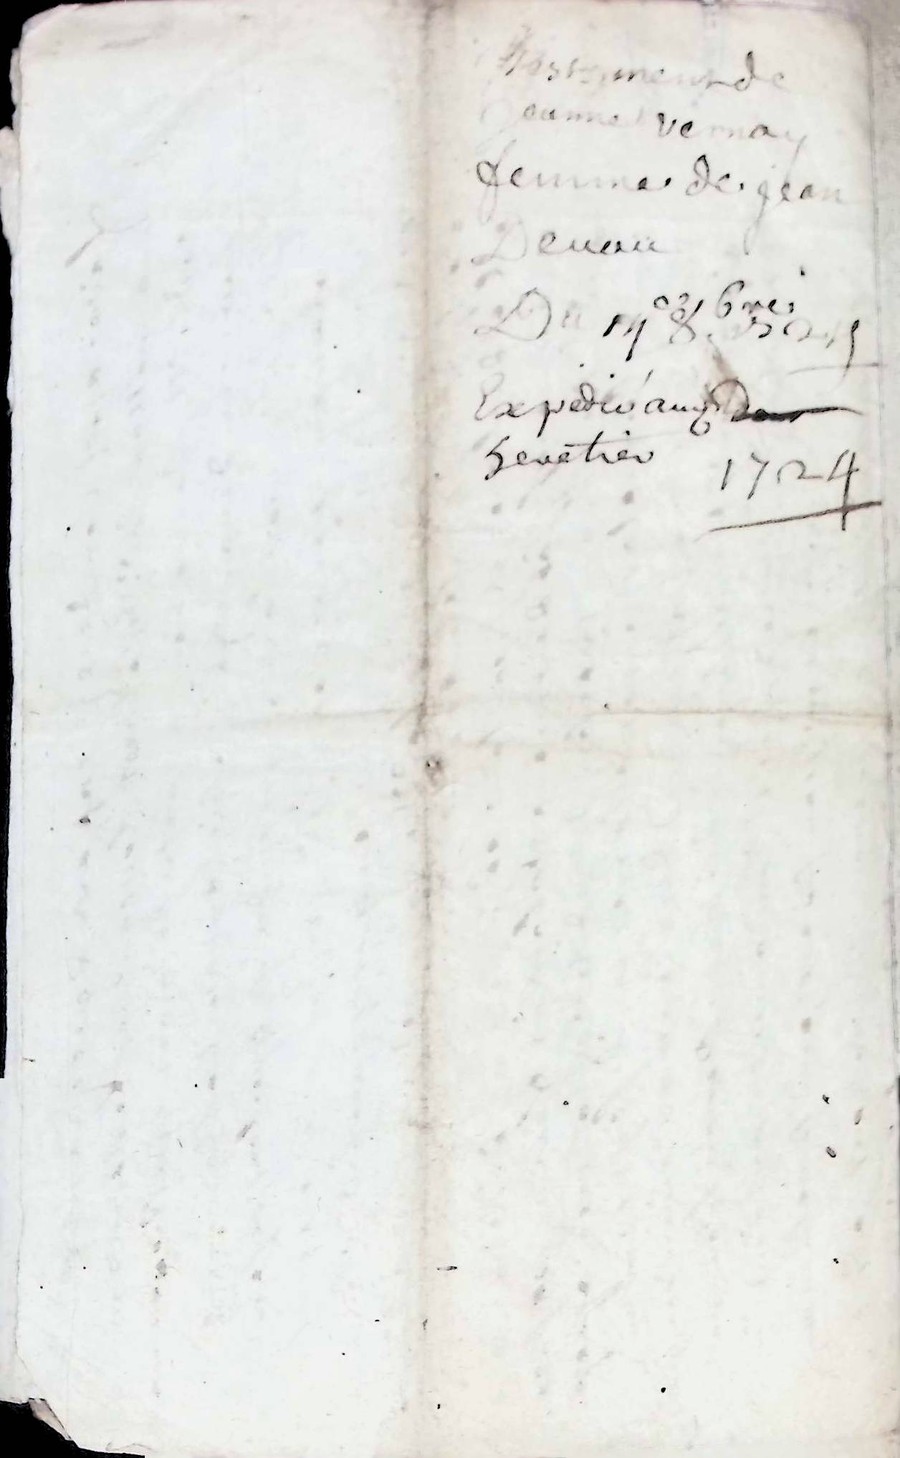 Testament de
Jeanne Vernay
femme de jean
Devau
Du 19e 8bre
Expedié aux
heretier 1724